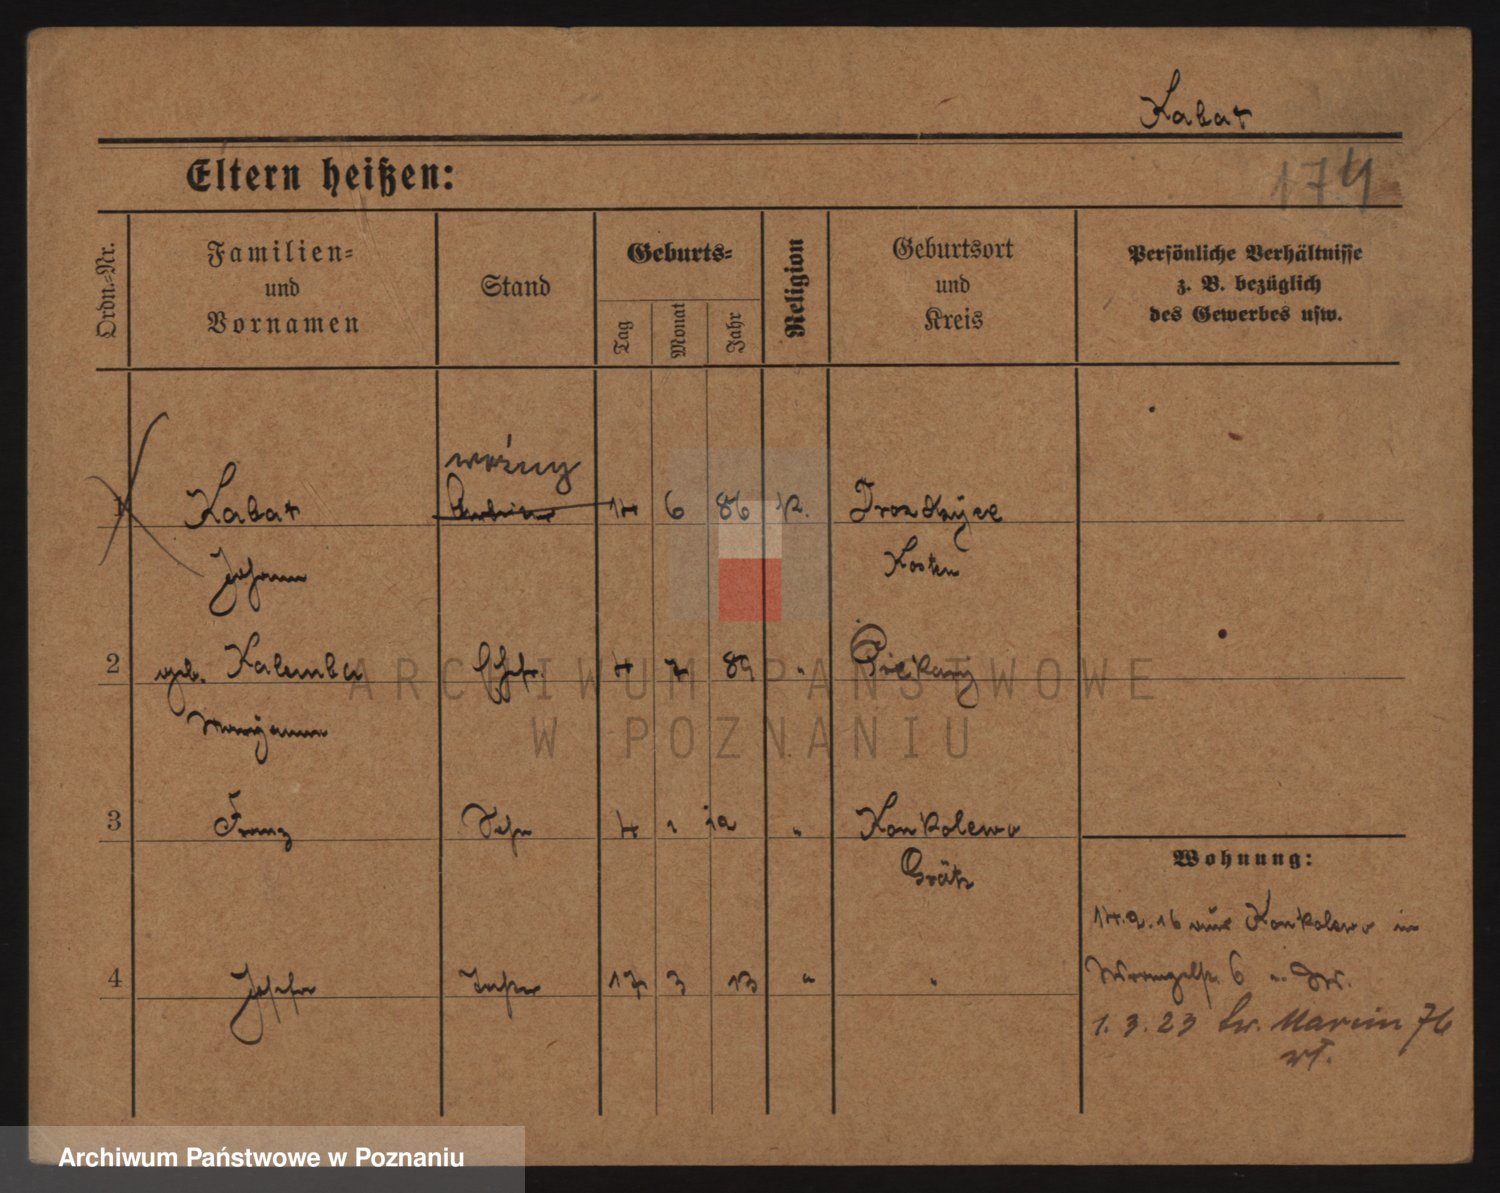 Kabat
174
Eltern heißen:
Ordn.=Nr.
Familien=
und
Vornamen
Stand
Geburts=
Tag
Monat
Jahr
Religion
Geburtsort
und
Kreis
Persönliche Verhältnisse
z. B. bezüglich
des Gewerbes usw.
woźny
1 Kabat 14 6 86 k.
Johann Kosten
2 geb. Kalemba Ehefr. 4 7 89 " Piekary
Maryanna
3 Franz Sohn 4 1 12 " Konkolewo
Grätz
Wohnung:
14.9.16 aus Konkolewo in
4 Josefa 17 3 13 " "
6
1.3.23 Św. Marcin 76
ARCHIWUM PAŃSTWOWE
W POZNANIU
Archiwum Państwowe w Poznaniu